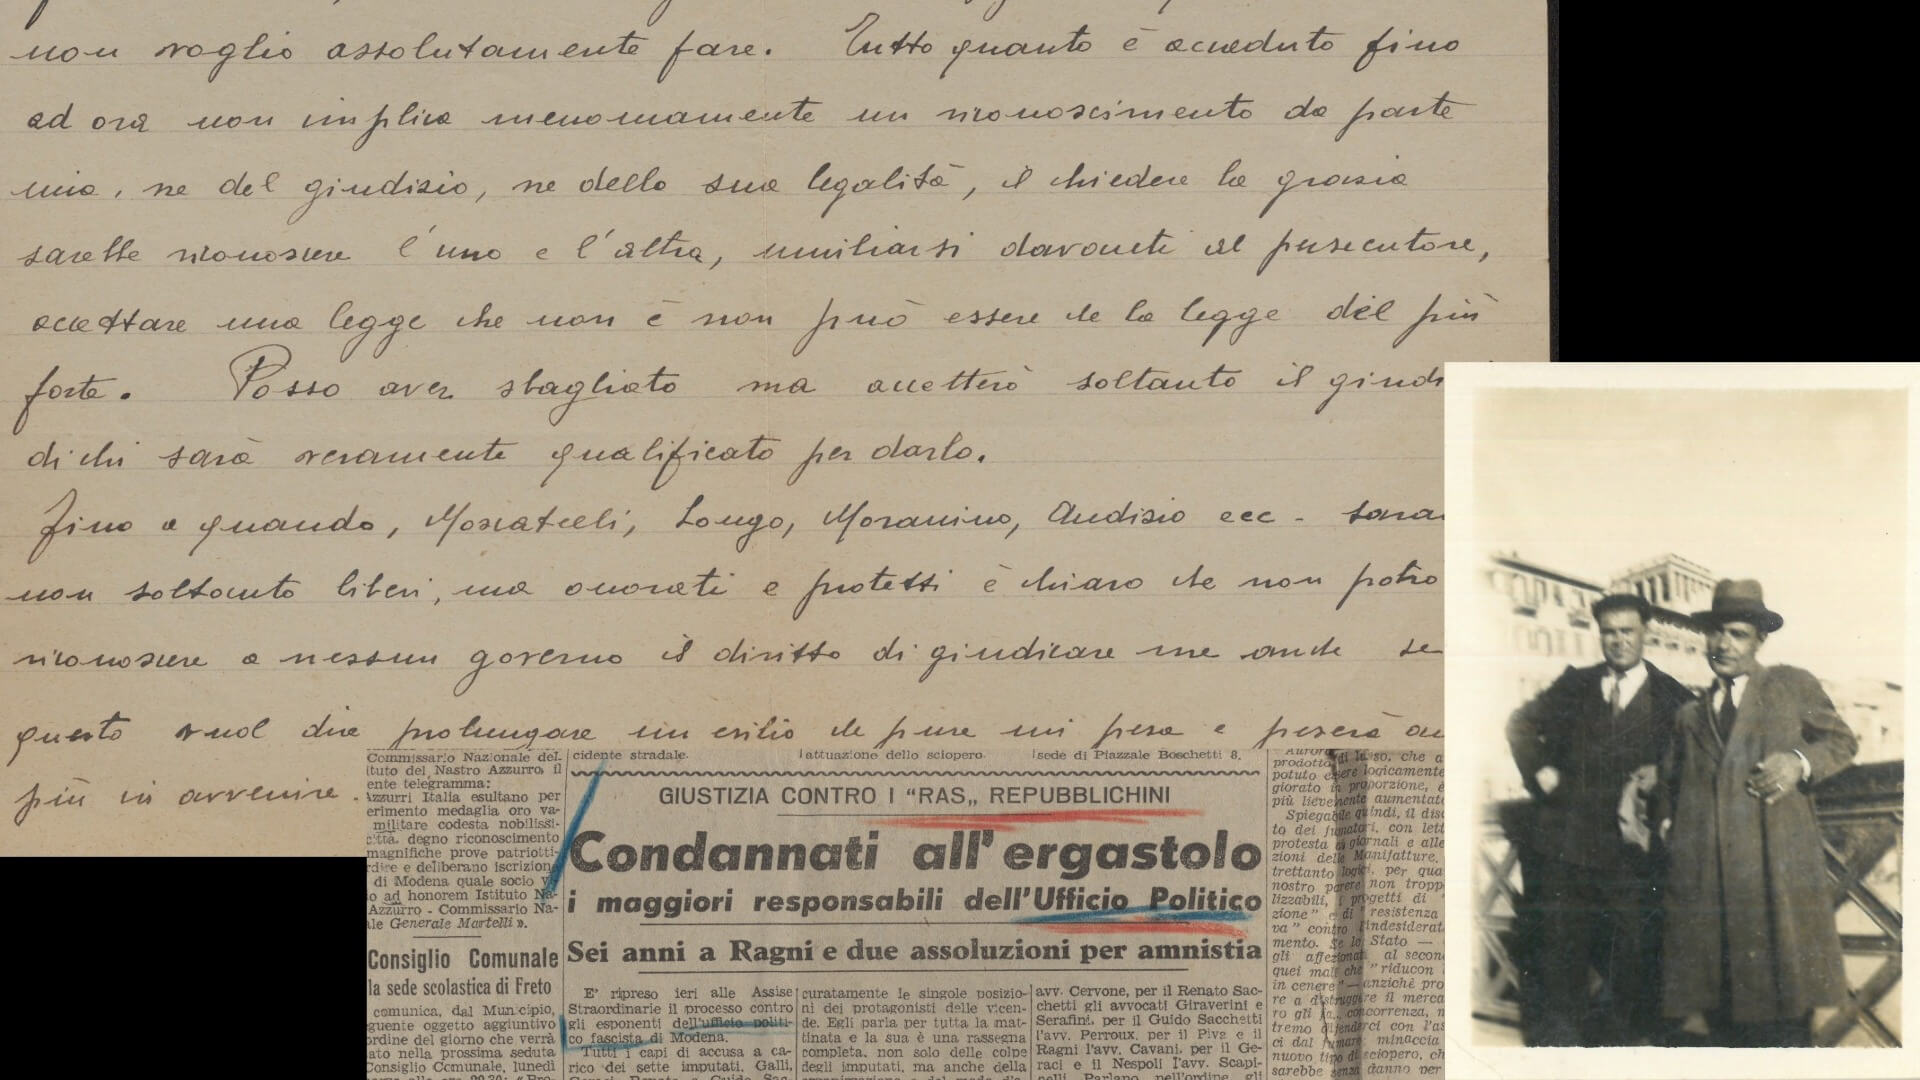 non voglio assolutamente fare. Tutto quanto è accaduto fino
ad ora non implica menomamente un riconoscimento da parte
mia, ne del giudizio, ne della sua legalità, il chiedere la grazia
sarebbe riconoscere l'uno e l'altra, umiliarsi davanti al persecutore,
accettare una legge che non è non può essere che la legge del più
forte. Posso aver sbagliato ma accetterò soltanto il giudi
di chi sarà veramente qualificato per darlo.
Fino a quando, Moscatelli, Longo, Moranino, Audisio ecc - saran
non soltanto liberi, ma onorati e protetti è chiaro che non potrò
riconoscere a nessun governo il diritto di giudicare me anche se
questo vuol dire prolungare un esilio che pure mi pesa e peserà
più in avvenire.
Commissario Nazionale del-
ituto del Nastro Azzurro, il
ente telegramma:
Azzurri Italia esultano per
erimento medaglia oro va-
militare codesta nobilissi-
città, degno riconoscimento
magnifiche prove patriotti-
rdire e deliberano iscrizione
di Modena quale socio
ad honorem Istituto Na-
Azzurro - Commissario Na-
le Generale Martelli ».
Consiglio Comunale
la sede scolastica di Freto
comunica, dal Municipio,
guente oggetto aggiuntivo
ordine del giorno che verrà
ato nella prossima seduta
Consiglio Comunale, lunedì
cidente stradale.
attuazione dello sciopero.
sede di Piazzale Boschetti 8.
GIUSTIZIA CONTRO I "RAS„ REPUBBLICHINI
Condannati all'ergastolo
i maggiori responsabili dell'Ufficio Politico
Sei anni a Ragni e due assoluzioni per amnistia
E' ripreso ieri alle Assise
Straordinarie il processo contro
gli esponenti dell'ufficio politi-
co fascista di Modena.
Tutti i capi di accusa a ca-
rico dei sette imputati, Galli,
curatamente le singole posizio-
ni dei protagonisti delle vicen-
de. Egli parla per tutta la mat-
tinata e la sua è una rassegna
completa, non solo delle colpe
degli imputati, ma anche della
avv. Cervone, per il Renato Sac-
chetti gli avvocati Giraverini e
Serafini, per il Guido Sacchetti
l'avv. Perroux, per il Piva e il
Ragni l'avv. Cavani, per il Ge-
raci e il Nespoli l'avv. Scapi-
nelli. Parlano nell'ordine gli
Aurora
prodotto di lusso, che a
potuto essere logicamente
giorato in proporzione, è
più lievemente aumentato
Spiegabile quindi, il disc
to dei fumatori, con lett
protesta ai giornali e alle
zioni delle Manifatture,
trettanto logici, per qua
nostro parere non tropp
lizzabili, i progetti di "
zione" e di "resistenza
va" contro l'indesiderat
mento. Se lo Stato —
gli affezionati al secon
quei mali che "riducon
in cenere" — anzichè pro
re a distruggere il merca
concorrenza, n
tremo difenderci con l'as
ci dal fumare: minaccia
nuovo tipo di sciopero, ch
sarebbe senza danno per